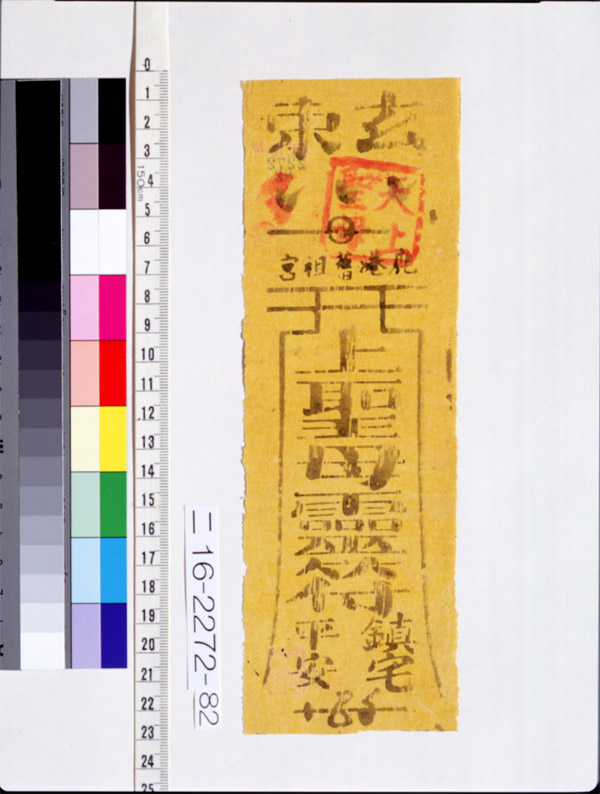 玄東
天上
聖母
鹿港普祖宮
上聖母靈符
鎮宅
平安
二16-2272-82
150cm
0
1
2
3
4
5
6
7
8
9
10
11
12
13
14
15
16
17
18
19
20
21
22
23
24
25